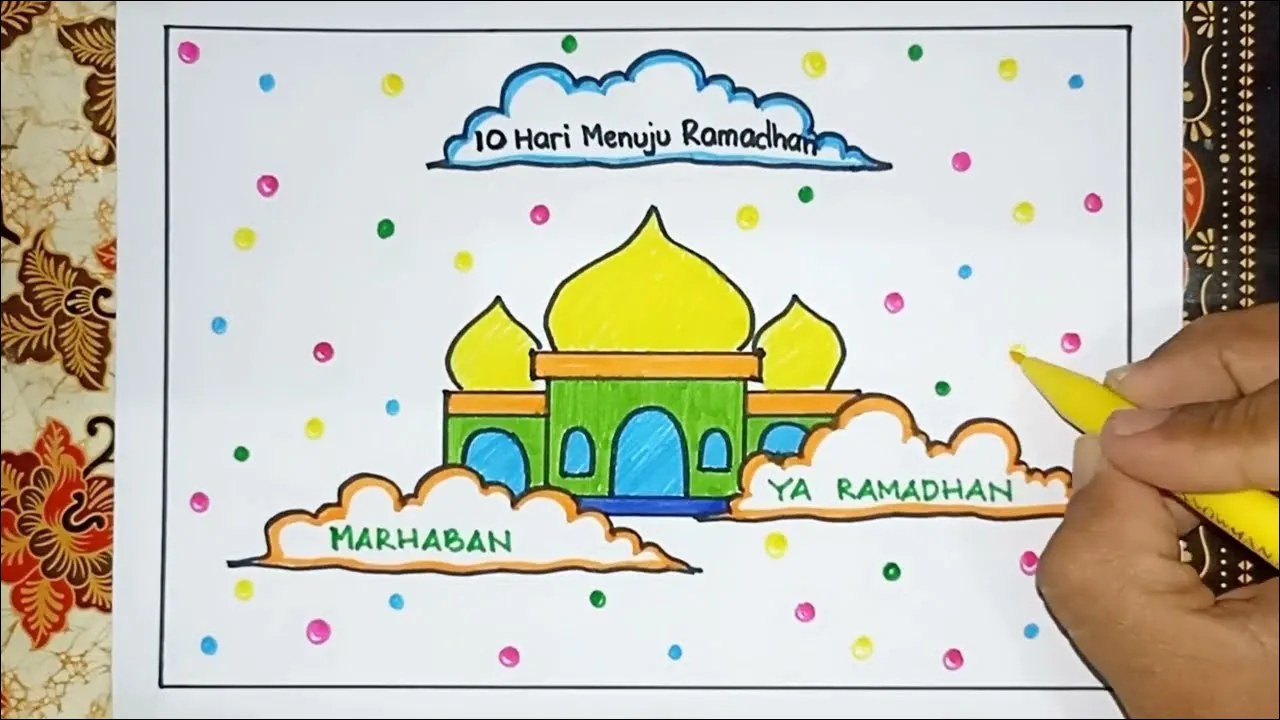 10 Hari Menuju Ramadhan
YA RAMADHAN
MARHABAN
SNOWMAN